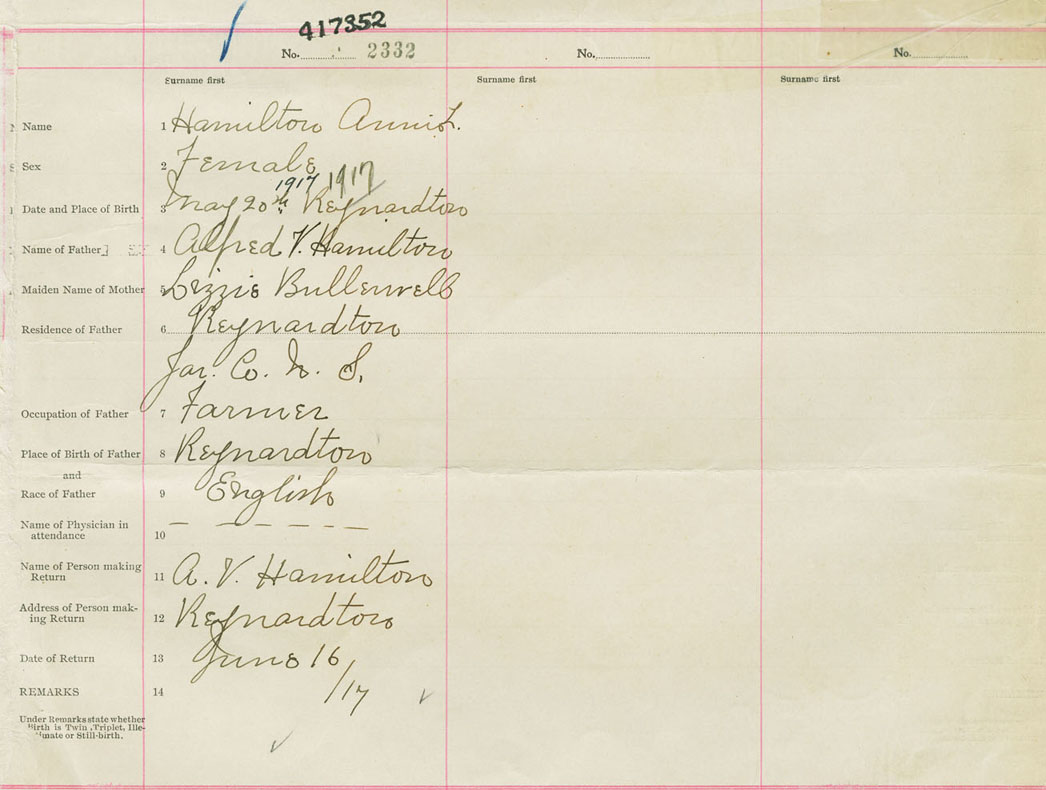 417352
No. 2332 No. No.
Surname first Surname first Surname first
Name 1 Hamilton Annie L.
Sex 2 Female
1917 1917
Date and Place of Birth 3 May 20th Reynardton
Name of Father 4 Alfred V. Hamilton
Maiden Name of Mother 5 Lizzie Bullerwell
Residence of Father 6 Reynardton
Yar. Co. N. S.
Occupation of Father 7 Farmer
Place of Birth of Father 8 Reynardton
and
Race of Father 9 English
Name of Physician in
attendance 10 — — — — —
Name of Person making
Return 11 A. V. Hamilton
Address of Person mak-
ing Return 12 Reynardton
Date of Return 13 June 16
/17
REMARKS 14
Under Remarks state whether
Birth is Twin, Triplet, Ille-
timate or Still-birth.